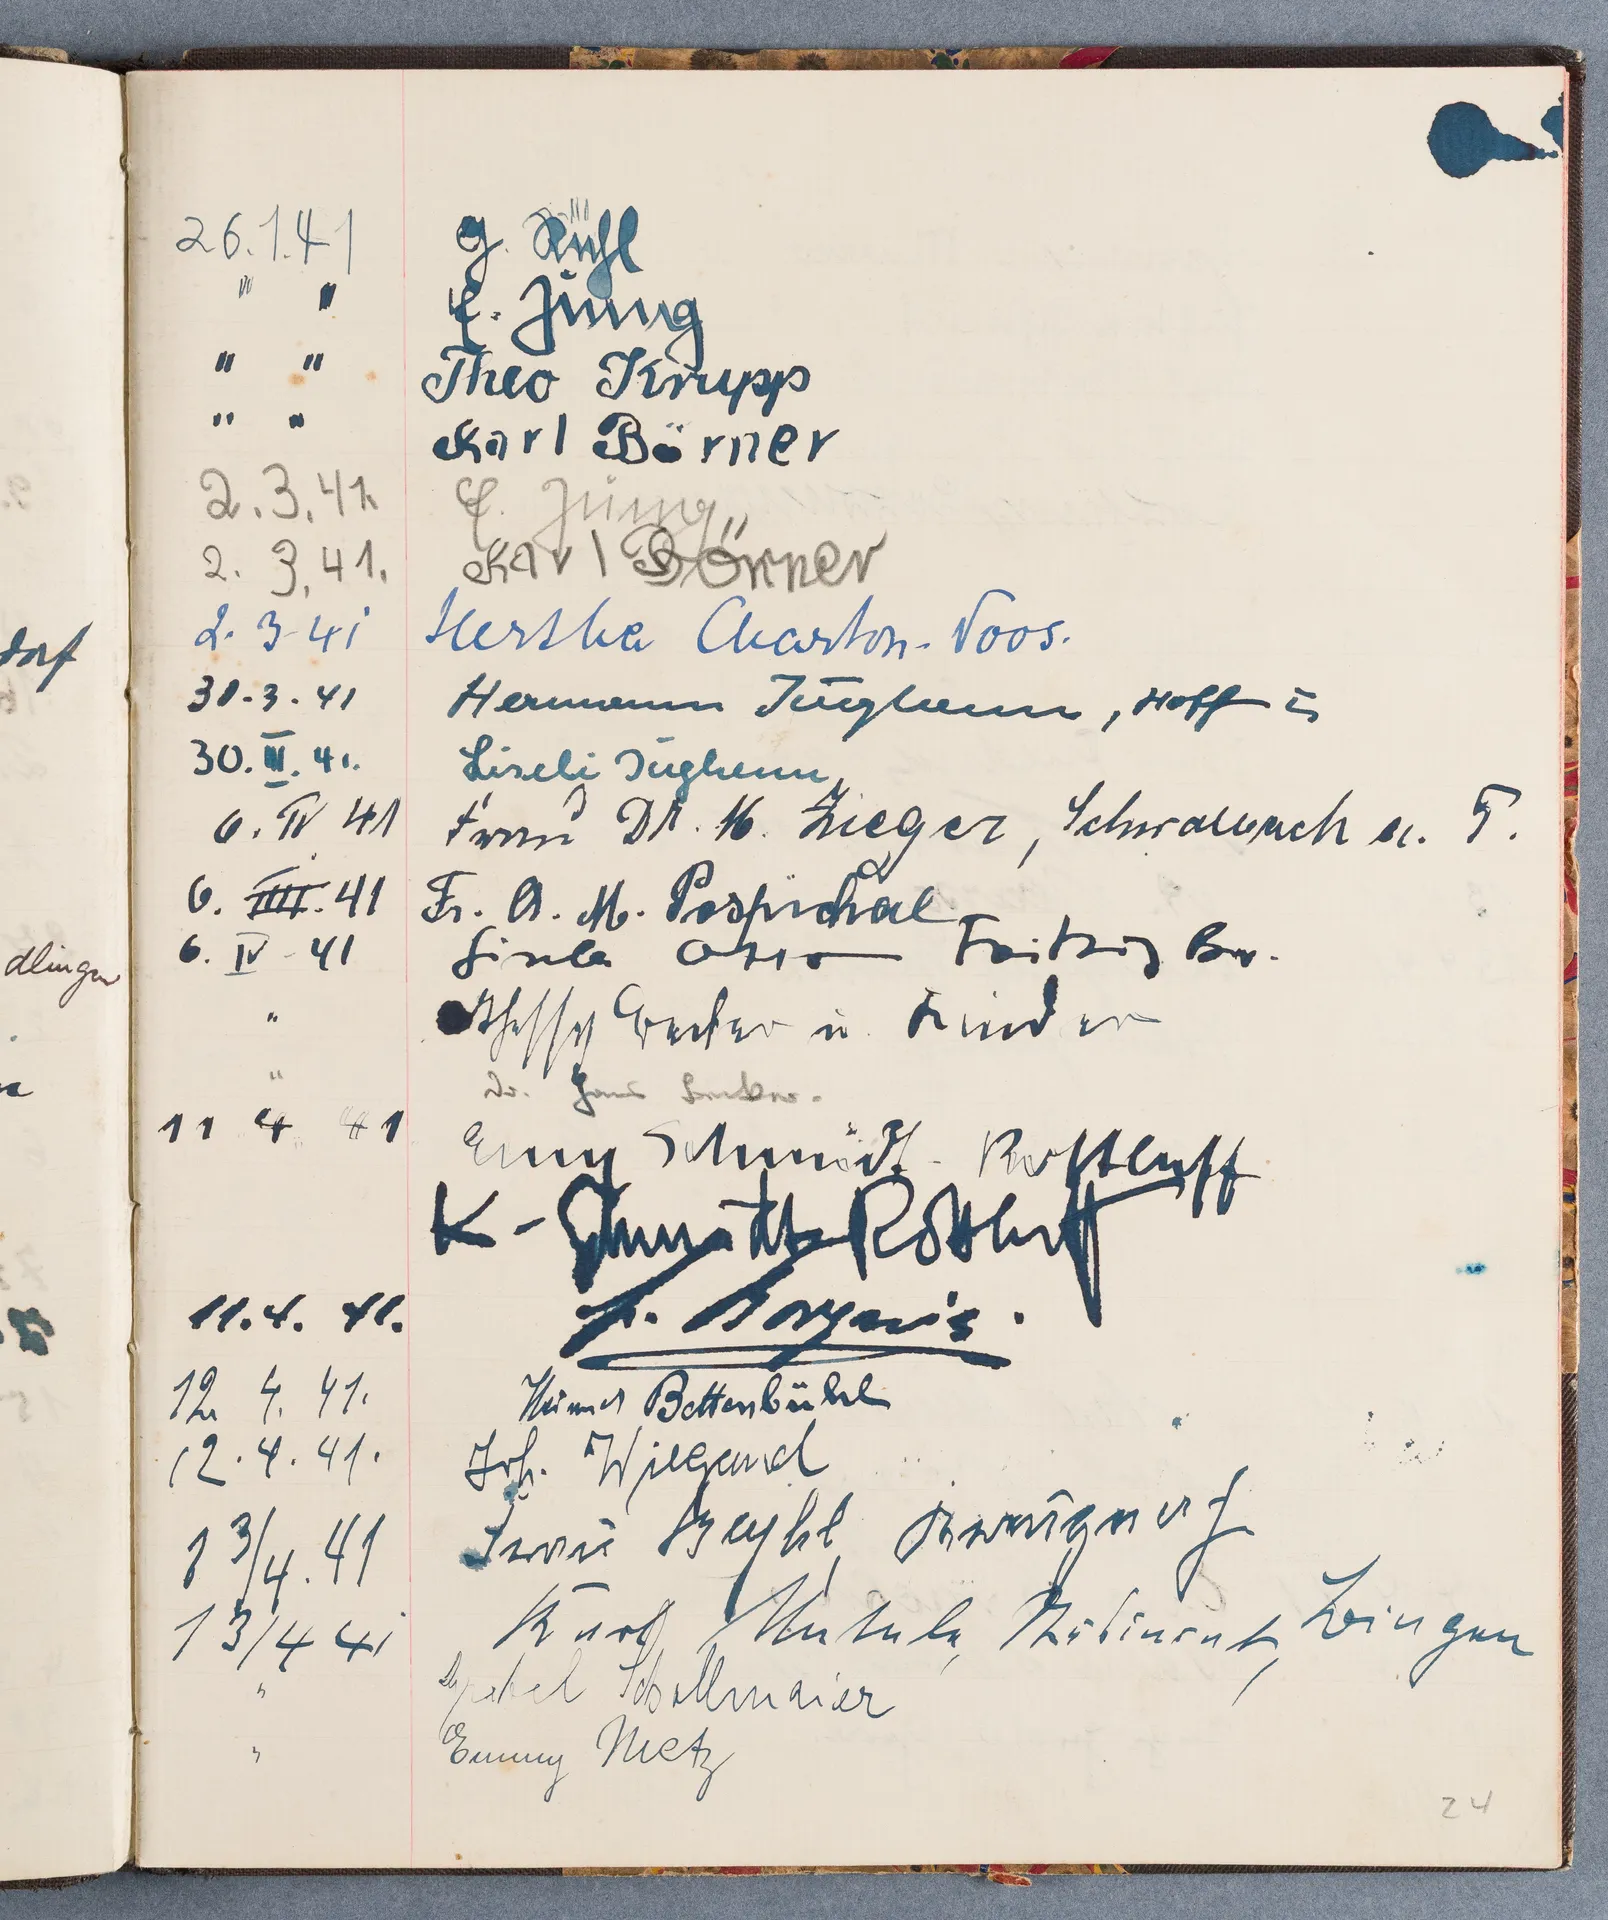 dorf
dlingen
26.1.41 G. Rühl
" " E. Jüng
" " Theo Krupp
" " Karl Börner
2.3.41. E. Jüng
2. 3.41. Karl Börner
2. 3-41 Hertha Charton-Voos.
30.3.41 Hermann Jughenn, Hoff
30.III.41. Liseli Jughenn
6. IV 41 Frau Dr. M. Zieger, Schwalbach a. T.
6. IIII. 41 Fr. A. M. Pospischal
6. IV - 41 Gisela Otto
" u. Kinder
" Dr. Hans Becker.
11 4 41 Emy Schmidt-Rottluff
K-Schmidt-Rottluff
11.4. 41. Borgnis.
12. 4. 41. Bettenbühl
12.4.41. Joh. Wiegand
13/4.41 Frau
13/4 41 Kurt
" Schollmaier
" Emmy Metz
24